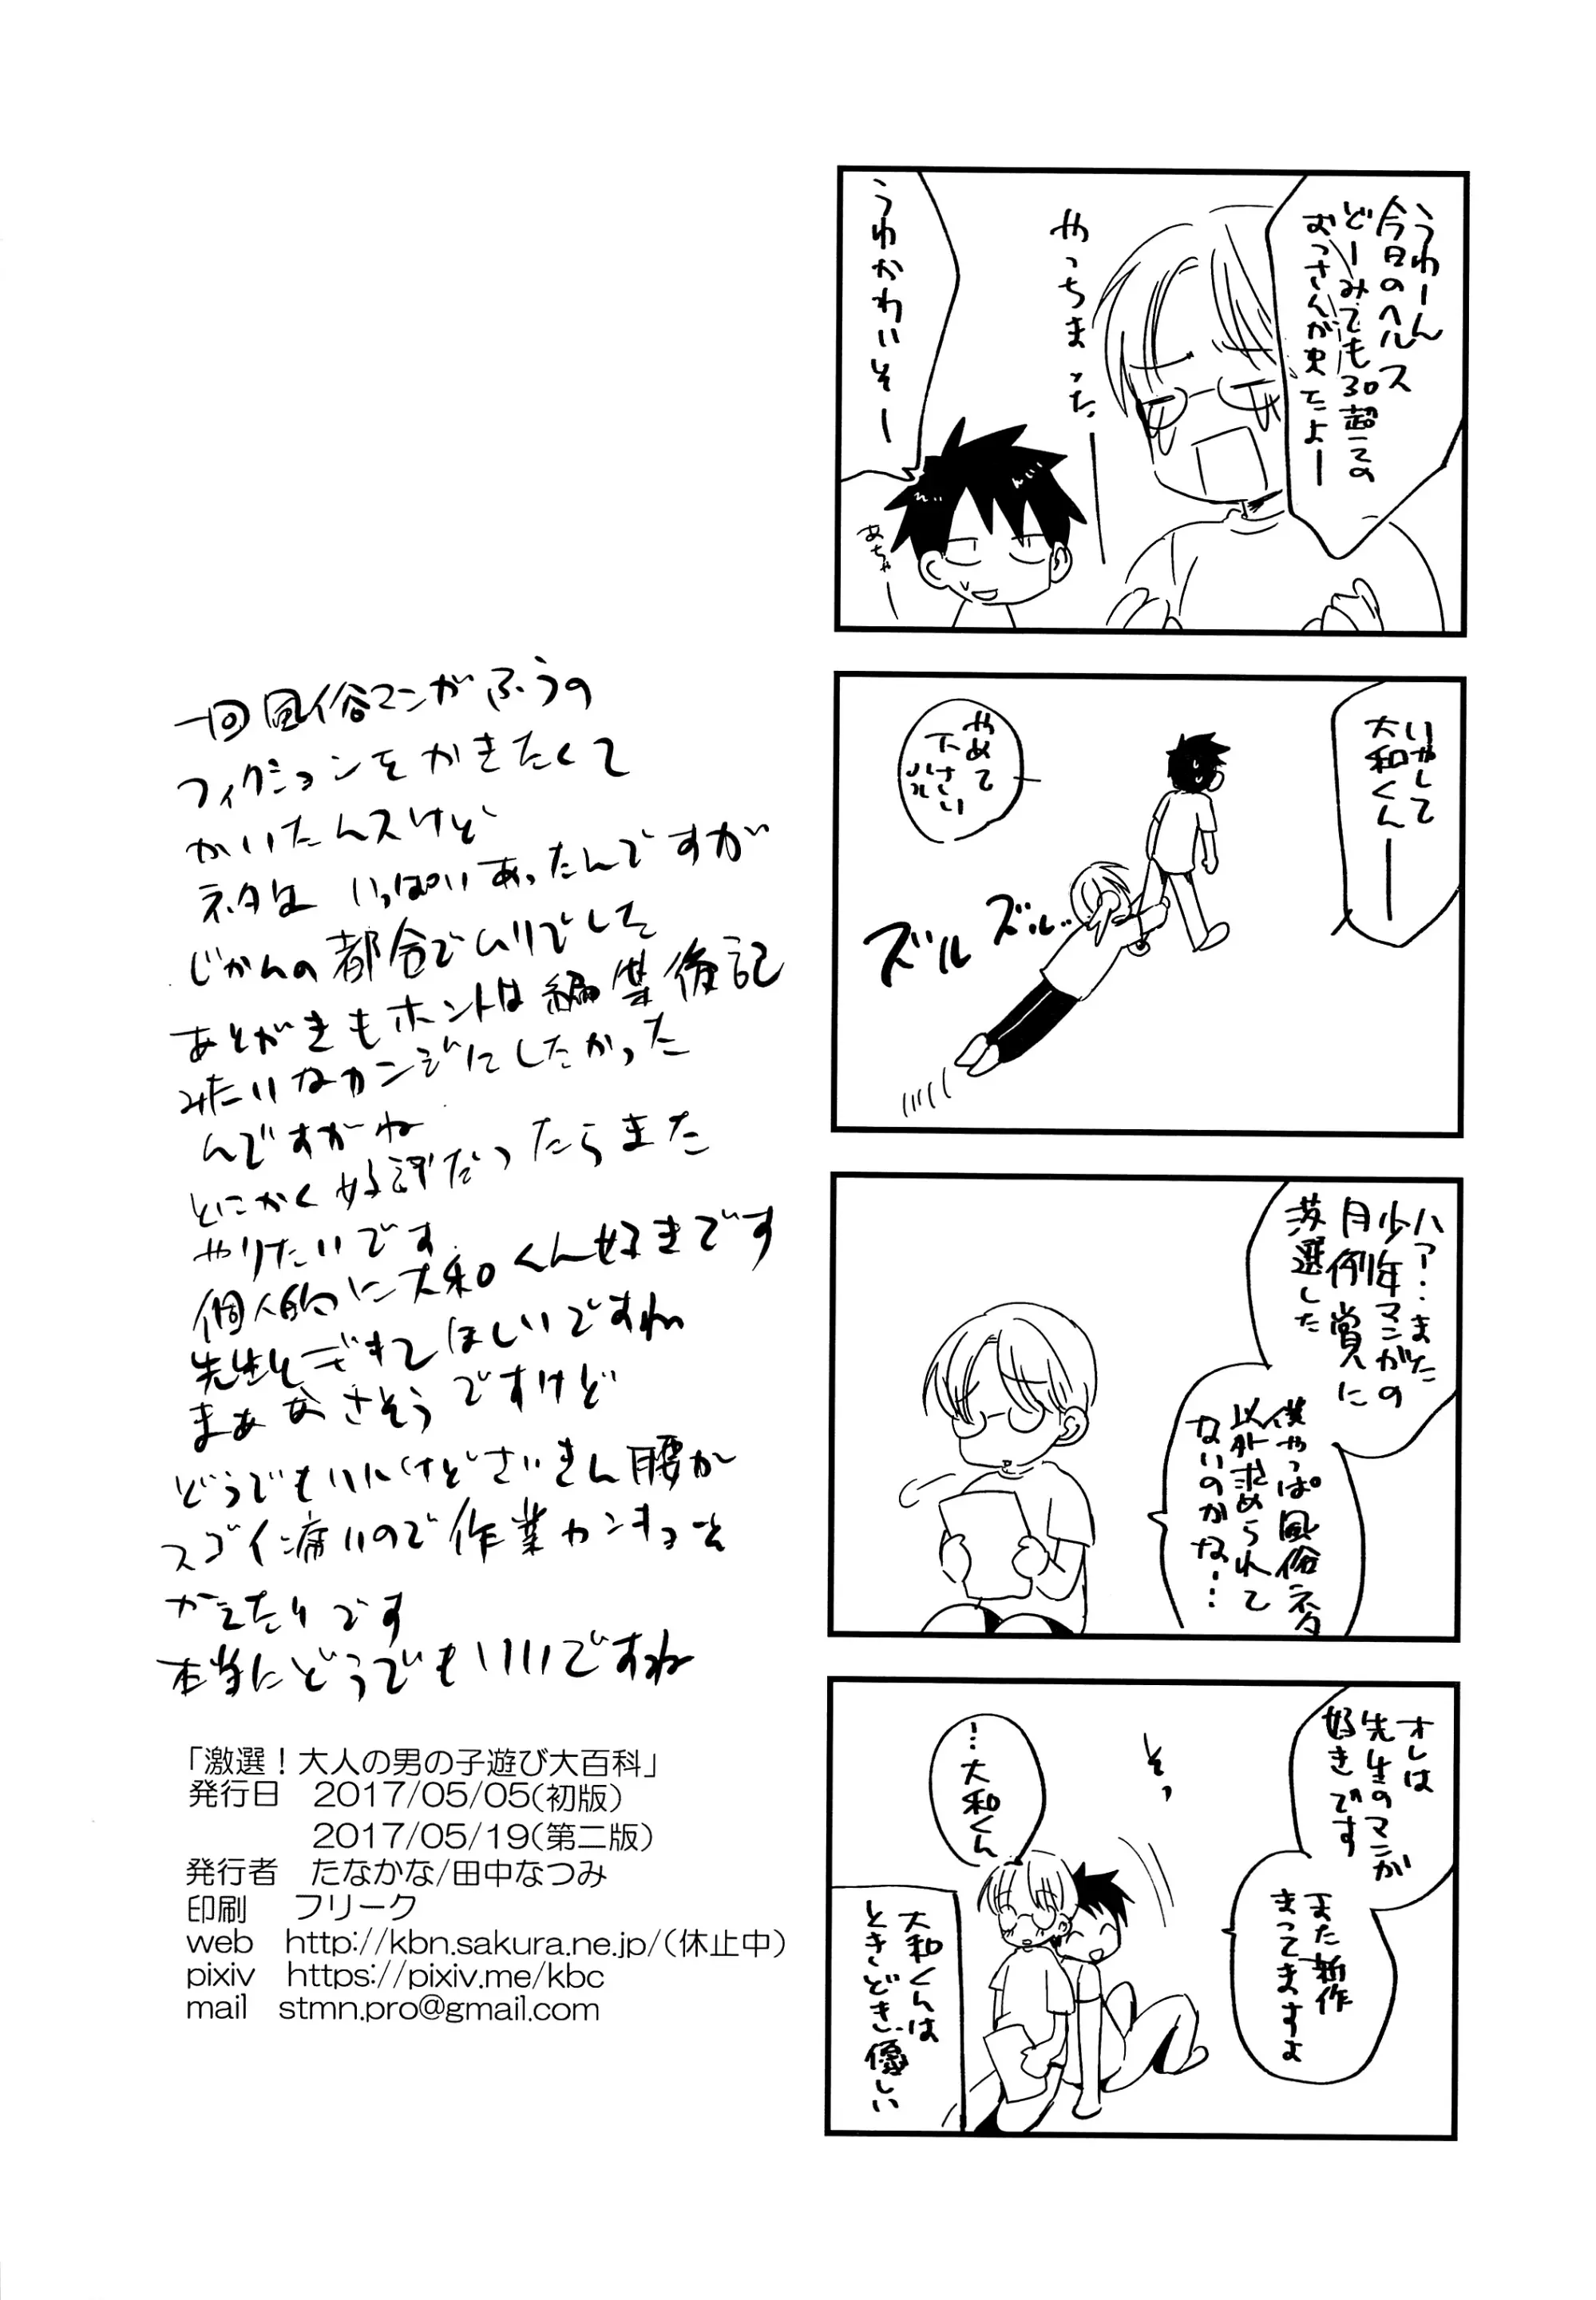 うわーん
今日のヘルス
どーみても30超ての
おっさんが来たよー
やっちまったー
うわかわいそー
あちゃー
いやして
大和くんー
やめて
下さい
ズルズル…
ハァ…また
少年マンガの
月例賞に
落選した
僕やっぱ風俗ネタ
以外求められて
ないのかな…
オレは
先生のマンガ
好きです
また新作
まってますよ
そっ
…大和くん
大和くんは
ときどき優しい
一回風俗マンガふうの
フィクションをかきたくて
かいたんスけど
ネタは いっぱいあったんですが
じかんの都合でムリでした
あとがきもホントは編集後記
みたいなカンジにしたかった
んですがね
とにかく好評だったらまた
やりたいです
個人的に大和くん好きです
先生とできてほしいですね
まあなさそうですけど
どうでもいいけどさいきん腰が
スゴイ痛いので作業カンキョーを
かえたいです
本当にどうでもいいですね
「激選！大人の男の子遊び大百科」
発行日 2017/05/05(初版)
2017/05/19(第二版)
発行者 たなかな/田中なつみ
印刷 フリーク
web http://kbn.sakura.ne.jp/(休止中)
pixiv https://pixiv.me/kbc
mail stmn.pro@gmail.com